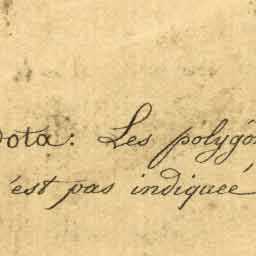 ota: Les polygo
'est pas indiqueé